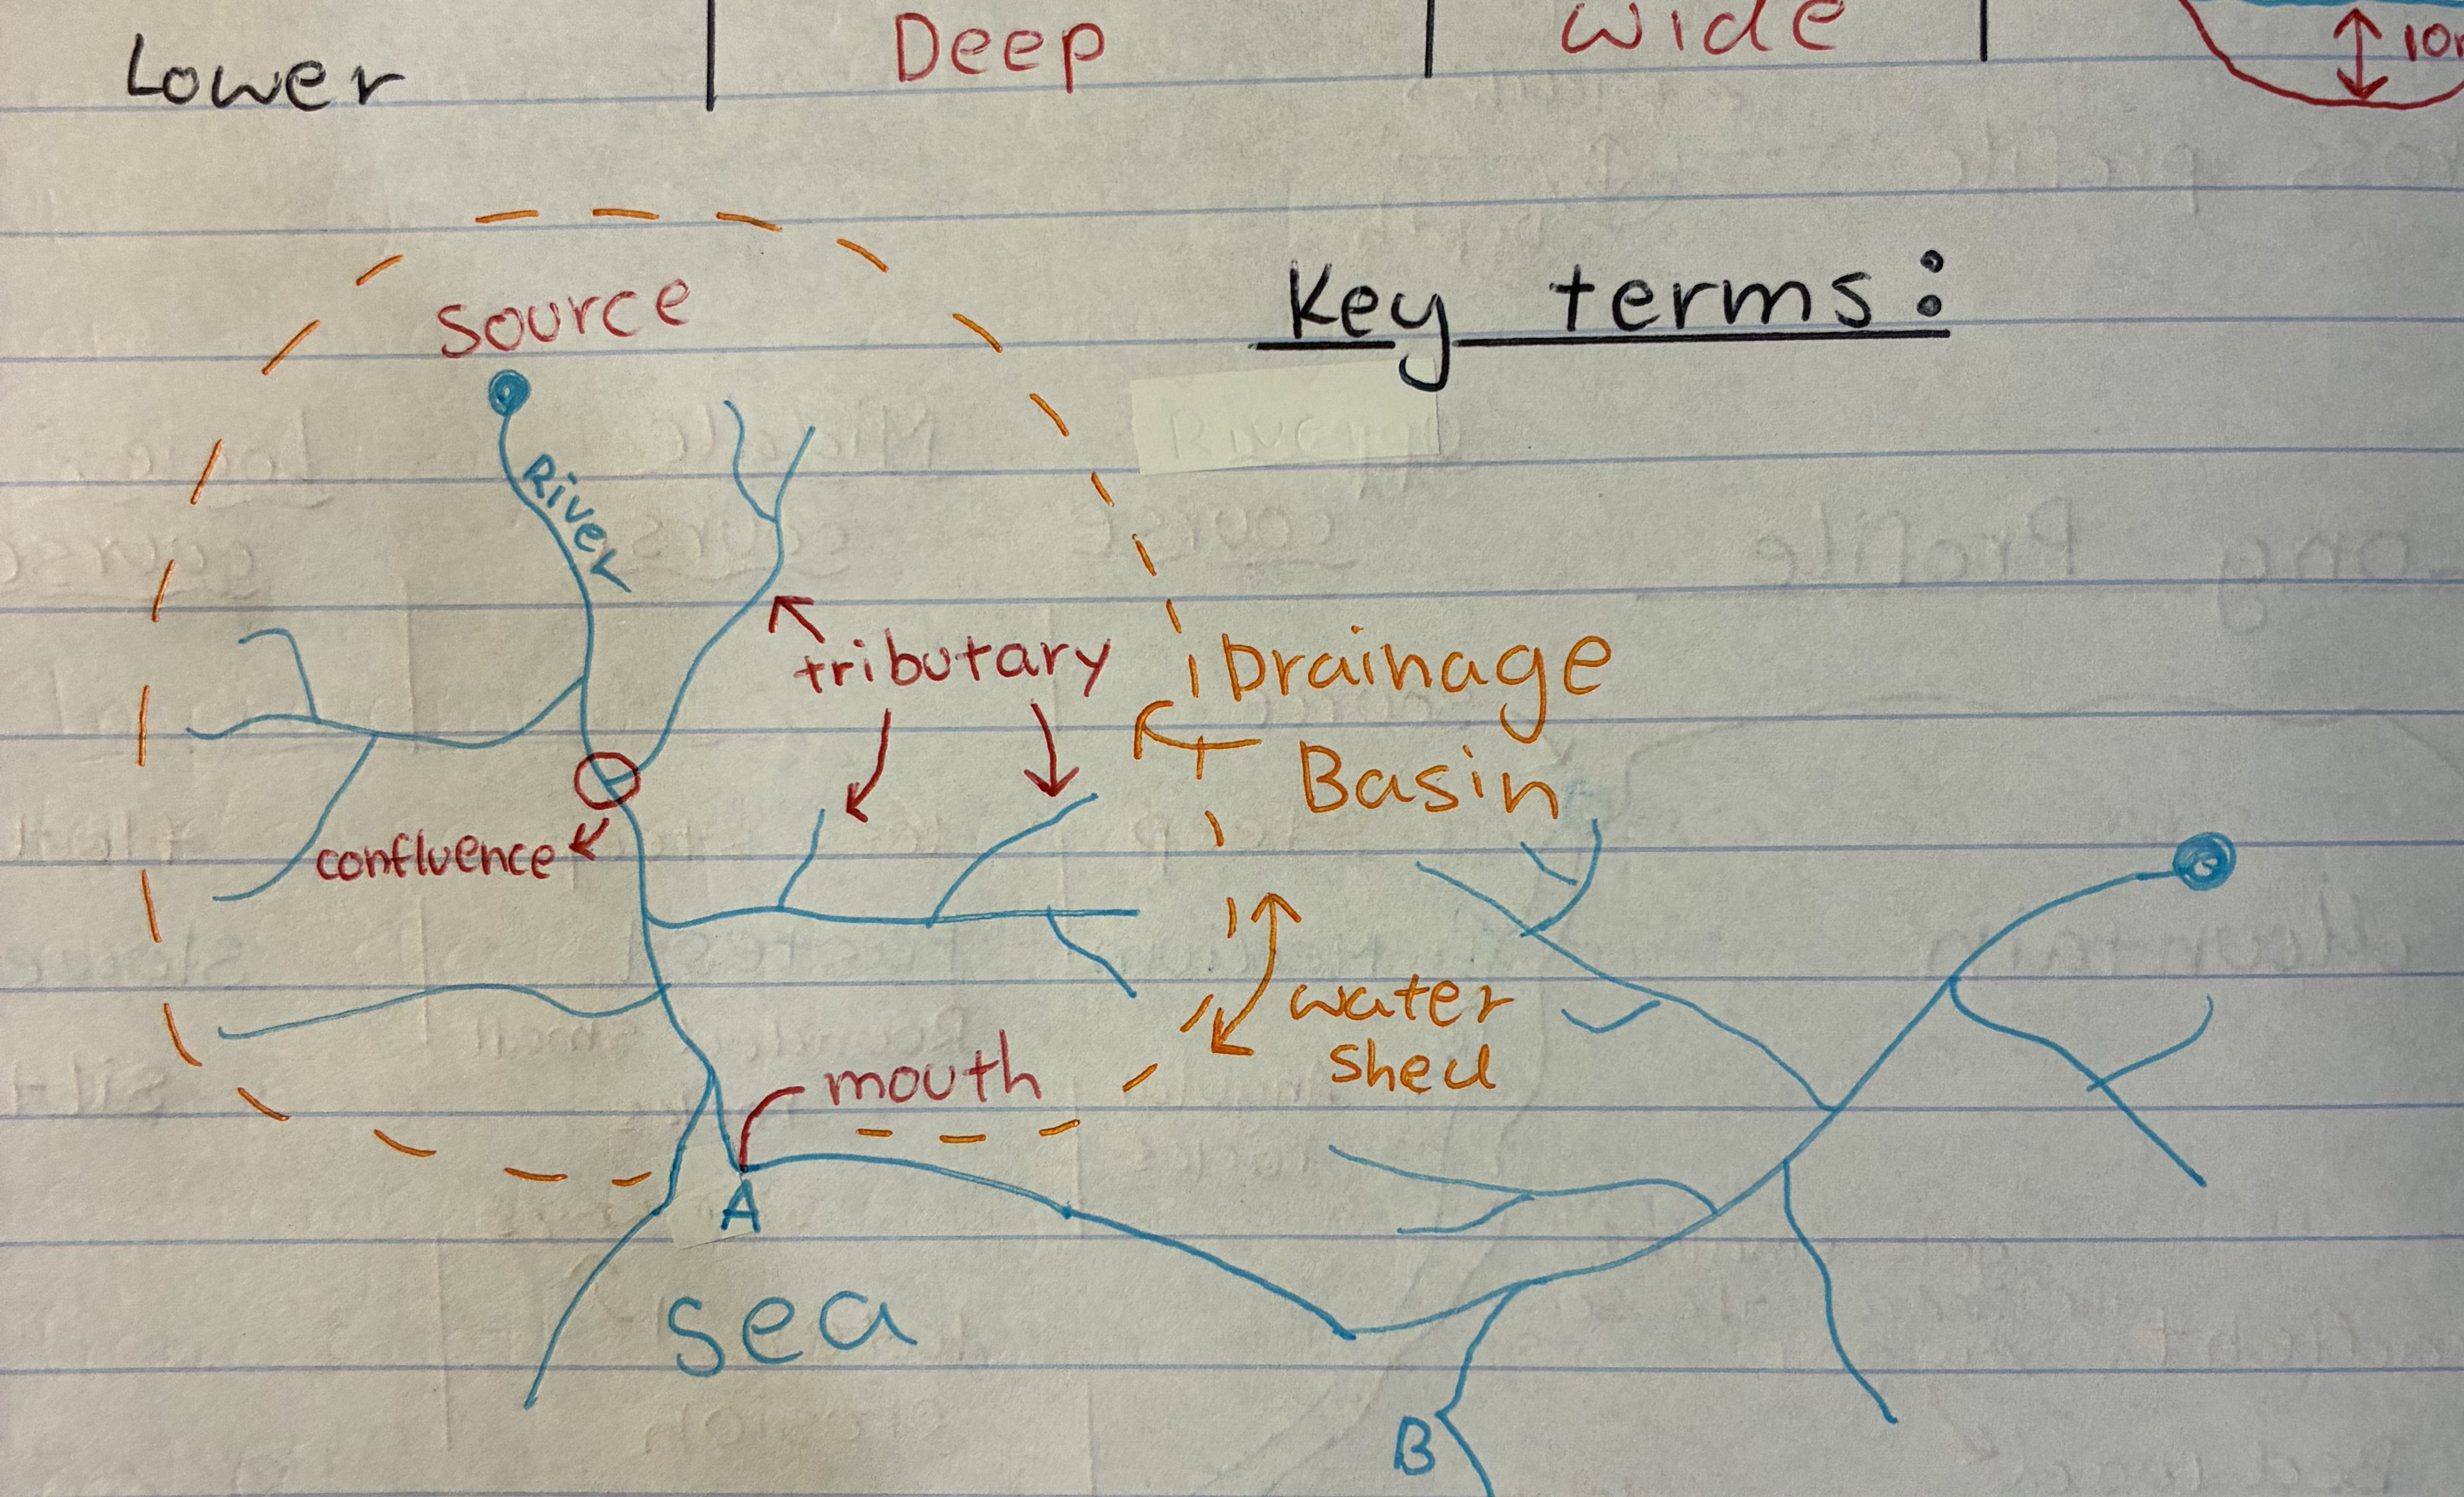 Lower Deep wide 10
Key terms:
Source
River
tributary
Drainage
Basin
confluence
water
shed
mouth
A
sea
B